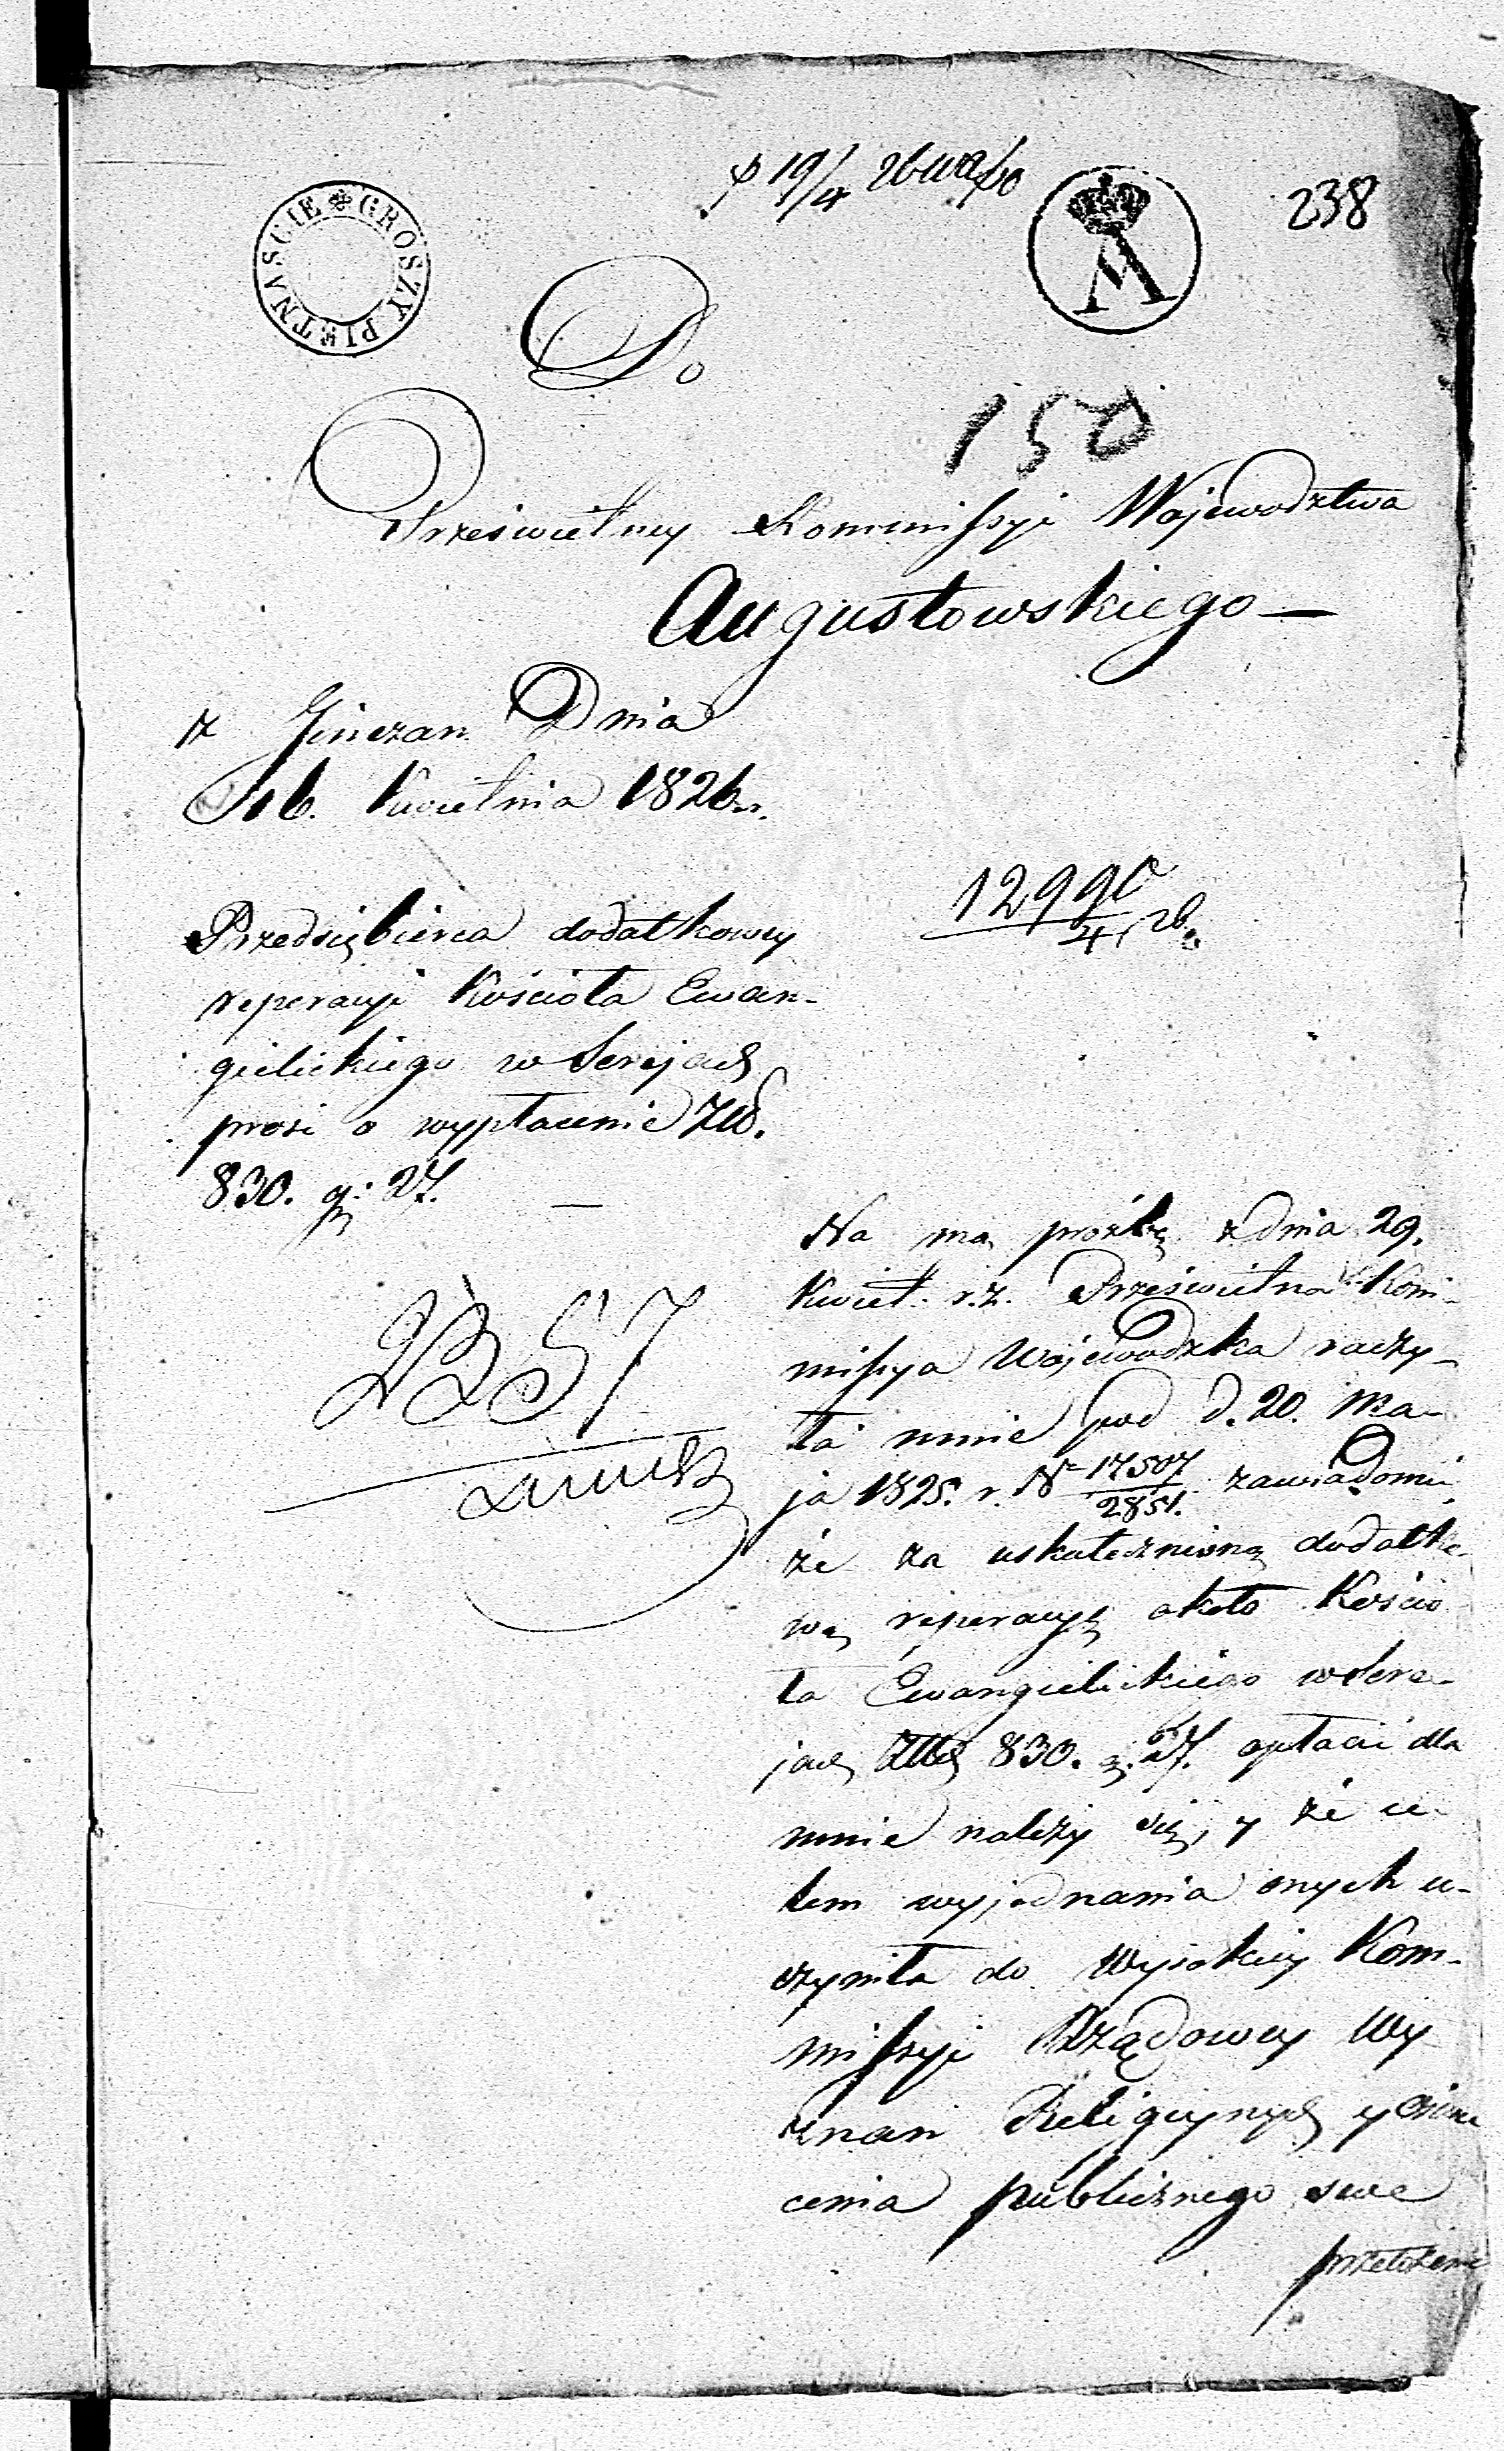 p 19/4 26
238
GROSZY PIĘTNAŚCIE
Do
150
Prześwietney Kommissyi Woiewodztwa
Augustowskiego —
z Dnia
16. Kwietnia 1826 r.
12990
4, 26.
Przedsiębierca dodatkowey
reperacyi Kościoła Ewan-
gielickiego w Serejach
prosi o wypłacenie Złł.
830. gr: 27. —
Na mą prośbę z dnia 29.
Kwiet: r. z. Prześwietna Kom-
missya Wojewodzka raczy-
ła mnie pod d. 20. Ma-
ja 1825. r. Nr 17507/2851. zawiadomić
że za uskutecznioną dodatko-
wą reperacyę około Kościo
ła Ewangielickiego w Sere-
jach Złł 830. g. 27. opłacić dla
mnie należy się, y że ce-
lem wyjednania onych u-
czyniła do Wysokiey Kom-
missyi Rządowey Wy
znań Religiynych y Oświe
cenia publicznego swe
przełożenie